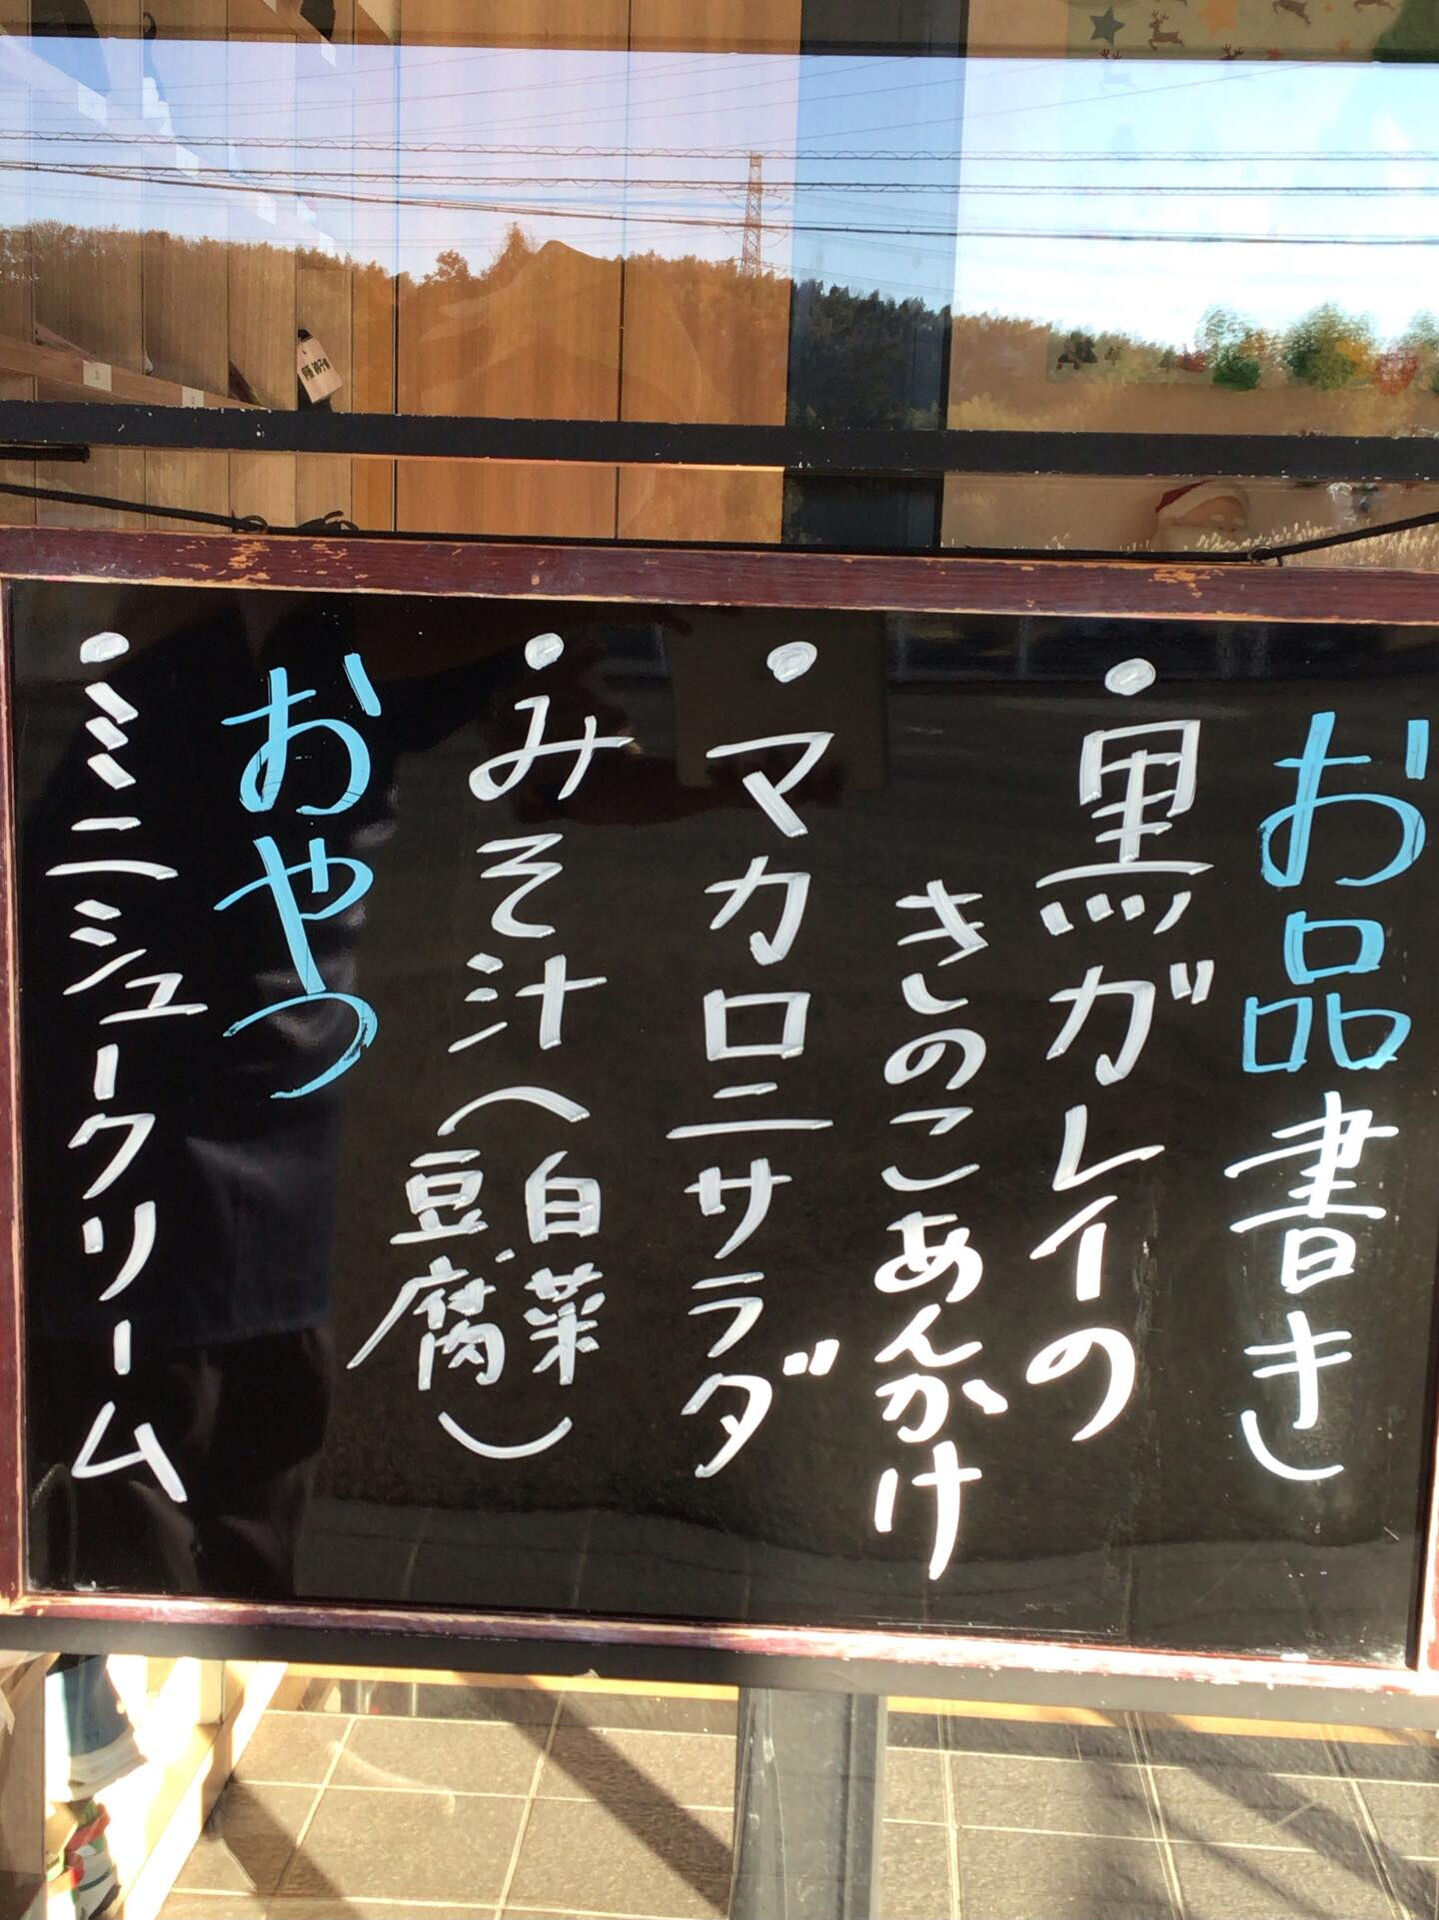 お品書き
・黒ガレイの
きしのこあんかけ
・マカロニサラダ
・みそ汁(白菜、
豆腐)
おやつ
・ミニシュークリーム